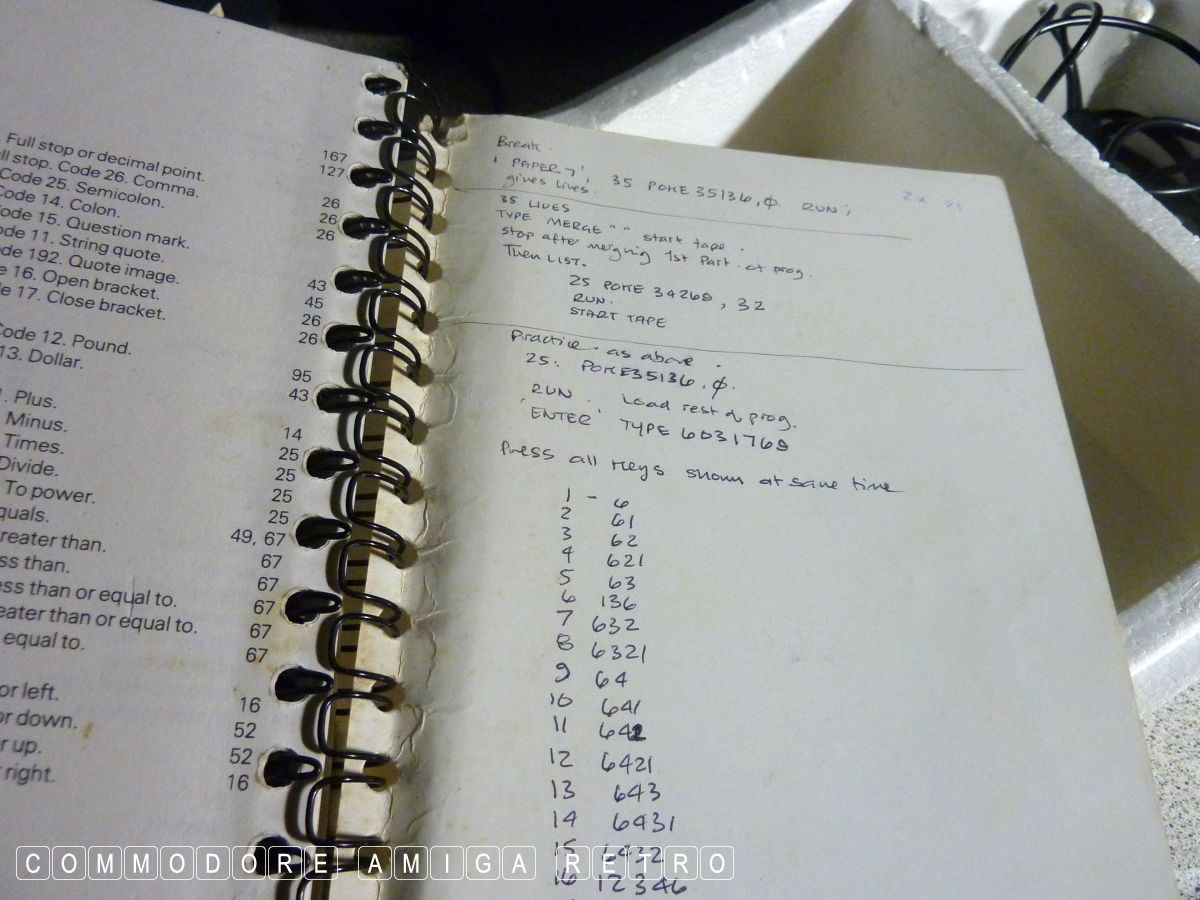 Full stop or decimal point. 167
ll stop. Code 26. Comma. 127
Code 25. Semicolon.
Code 14. Colon. 26
ode 15. Question mark. 26
de 11. String quote. 26
de 192. Quote image.
e 16. Open bracket. 43
le 17. Close bracket. 45
26
Code 12. Pound. 26
13. Dollar.
95
. Plus. 43
Minus.
Times. 14
Divide. 25
To power. 25
quals. 25
reater than. 25
ss than. 49, 67
ess than or equal to. 67
eater than or equal to. 67
equal to. 67
67
or left. 67
or down. 16
r up. 52
right. 52
16
Break.
' PAPER 7', 35 POKE 35136,0. RUN;
gives lives.
35 LIVES
TYPE MERGE " " start tape.
stop after merging 1st part of prog.
Then LIST.
25 POKE 34268, 32
RUN.
START TAPE
Practice. as above.
25: POKE35136,0.
RUN. Load rest of prog.
'ENTER' TYPE 6031768
Press all keys shown at same time
1 - 6
2 61
3 62
4 621
5 63
6 136
7 632
8 6321
9 64
10 641
11 642
12 6421
13 643
14 6431
15 6432
16 12346
COMMODORE AMIGA RETRO